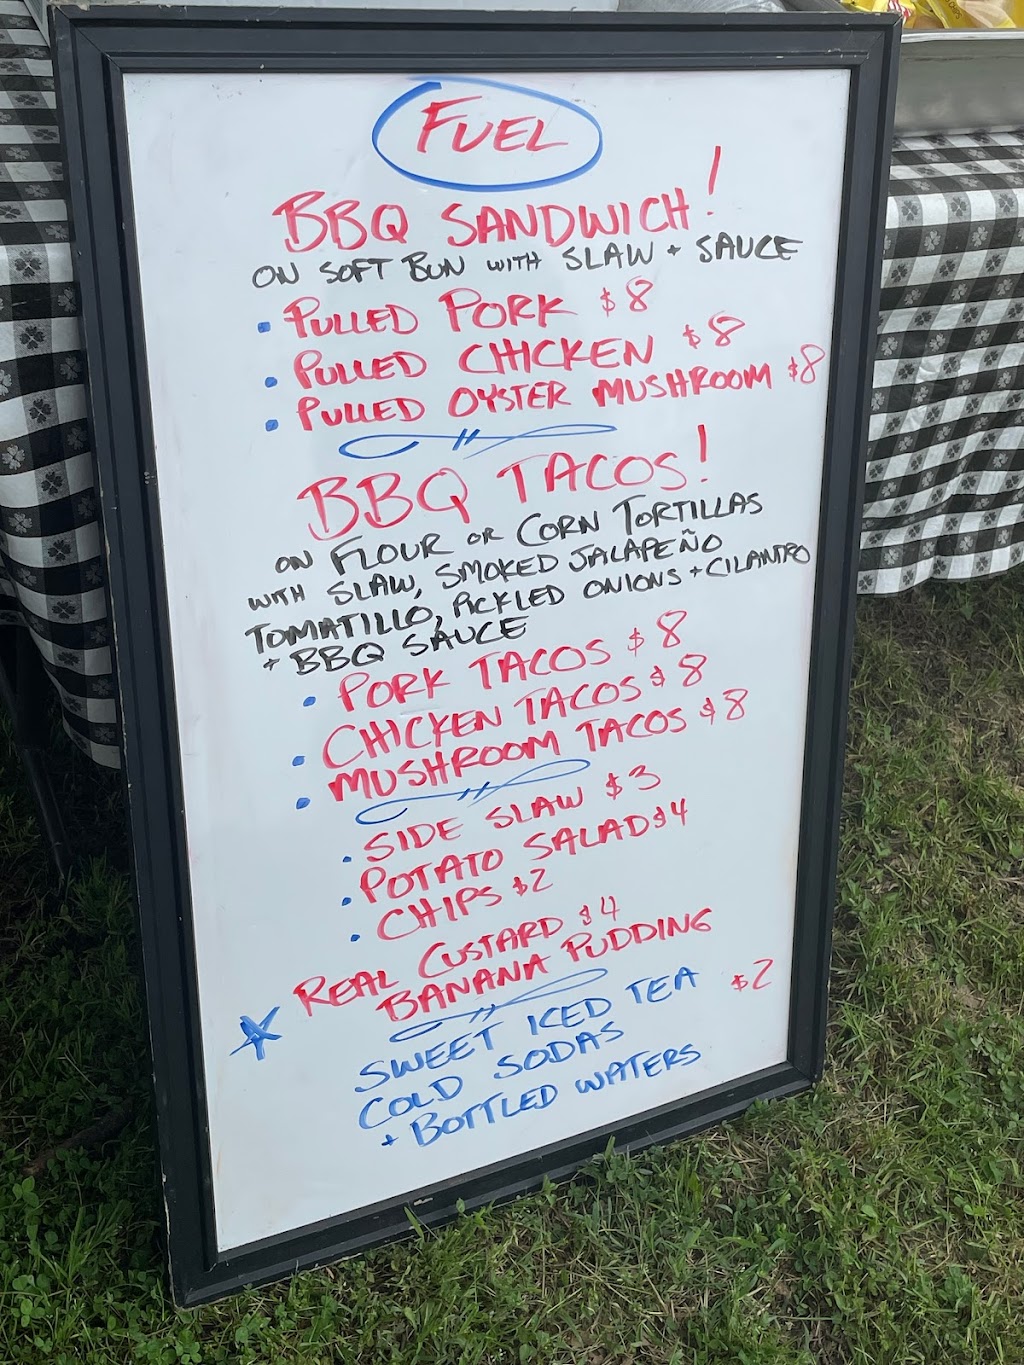 FUEL
BBQ SANDWICH!
ON SOFT BUN WITH SLAW + SAUCE
• PULLED PORK $8
• PULLED CHICKEN $8
• PULLED OYSTER MUSHROOM $8
BBQ TACOS!
ON FLOUR OR CORN TORTILLAS
WITH SLAW, SMOKED JALAPEÑO
TOMATILLO, PICKLED ONIONS + CILANTRO
+ BBQ SAUCE
• PORK TACOS $8
• CHICKEN TACOS $8
• MUSHROOM TACOS $8
• SIDE SLAW $3
• POTATO SALAD $4
• CHIPS $2
REAL CUSTARD $4
BANANA PUDDING
SWEET ICED TEA $2
COLD SODAS
+ BOTTLED WATERS